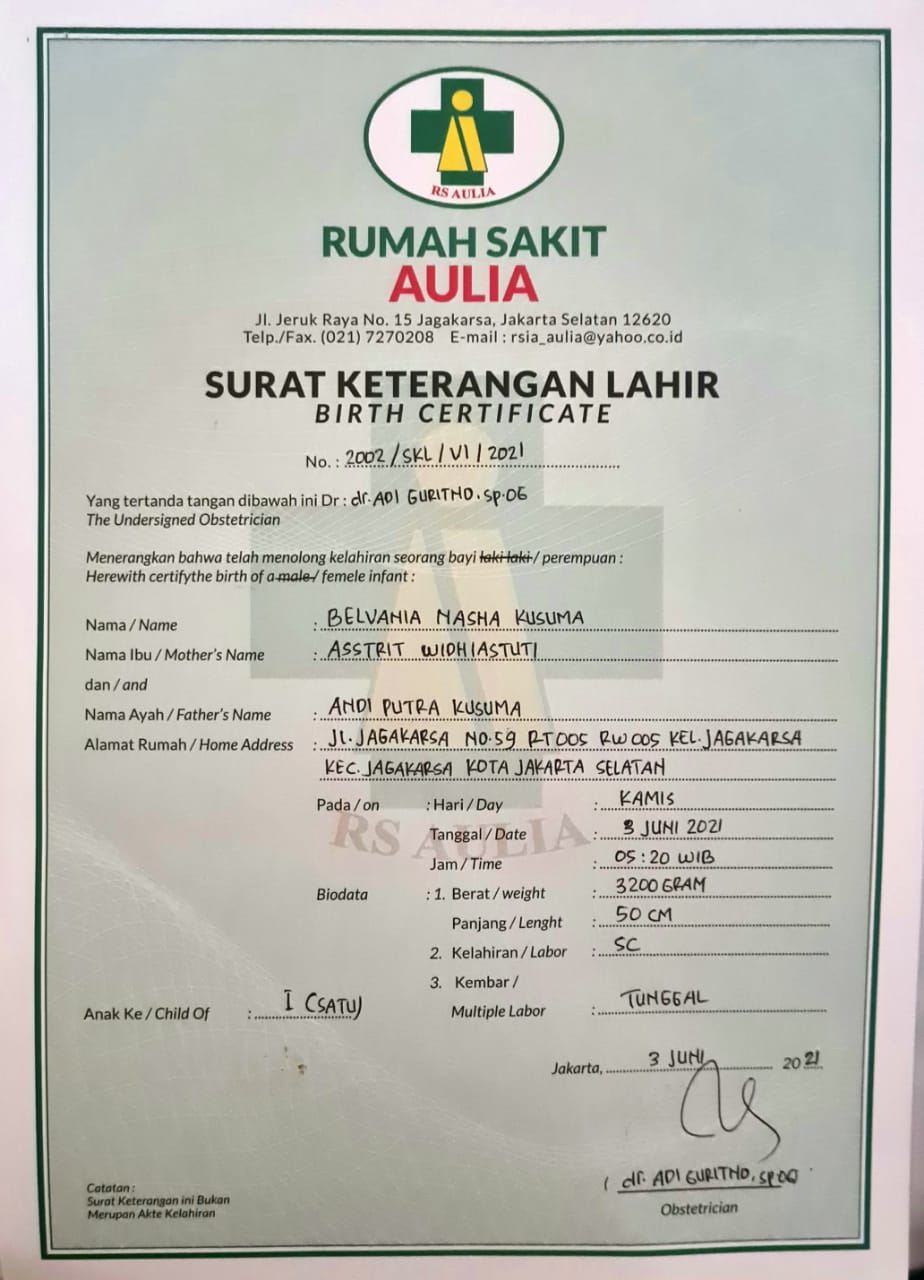 RS AULIA
RUMAH SAKIT
AULIA
Jl. Jeruk Raya No. 15 Jagakarsa, Jakarta Selatan 12620
Telp./Fax. (021) 7270208 E-mail : rsia_aulia@yahoo.co.id
SURAT KETERANGAN LAHIR
BIRTH CERTIFICATE
No. : 2002/SKL/VI/2021
Yang tertanda tangan dibawah ini Dr : dr. ADI GURITNO. SP.OG
The Undersigned Obstetrician
Menerangkan bahwa telah menolong kelahiran seorang bayi laki-laki / perempuan :
Herewith certifythe birth of a male / femele infant :
Nama / Name : BELVANIA NASHA KUSUMA
Nama Ibu / Mother's Name : ASSTRIT WIDHIASTUTI
dan / and
Nama Ayah / Father's Name : ANDI PUTRA KUSUMA
Alamat Rumah / Home Address : Jl. JAGAKARSA NO.59 RT005 RW005 KEL.JAGAKARSA
KEC.JAGAKARSA KOTA JAKARTA SELATAN
Pada / on : Hari / Day : KAMIS
RS AULIA
Tanggal / Date : 3 JUNI 2021
Jam / Time : 05:20 WIB
Biodata : 1. Berat / weight : 3200 GRAM
Panjang / Lenght : 50 CM
2. Kelahiran / Labor : SC
3. Kembar /
Multiple Labor : TUNGGAL
Anak Ke / Child Of : I (SATU)
Jakarta, 3 JUNI 2021
( dr. ADI GURITNO, SP.OG
Obstetrician
Catatan :
Surat Keterangan ini Bukan
Merupan Akte Kelahiran